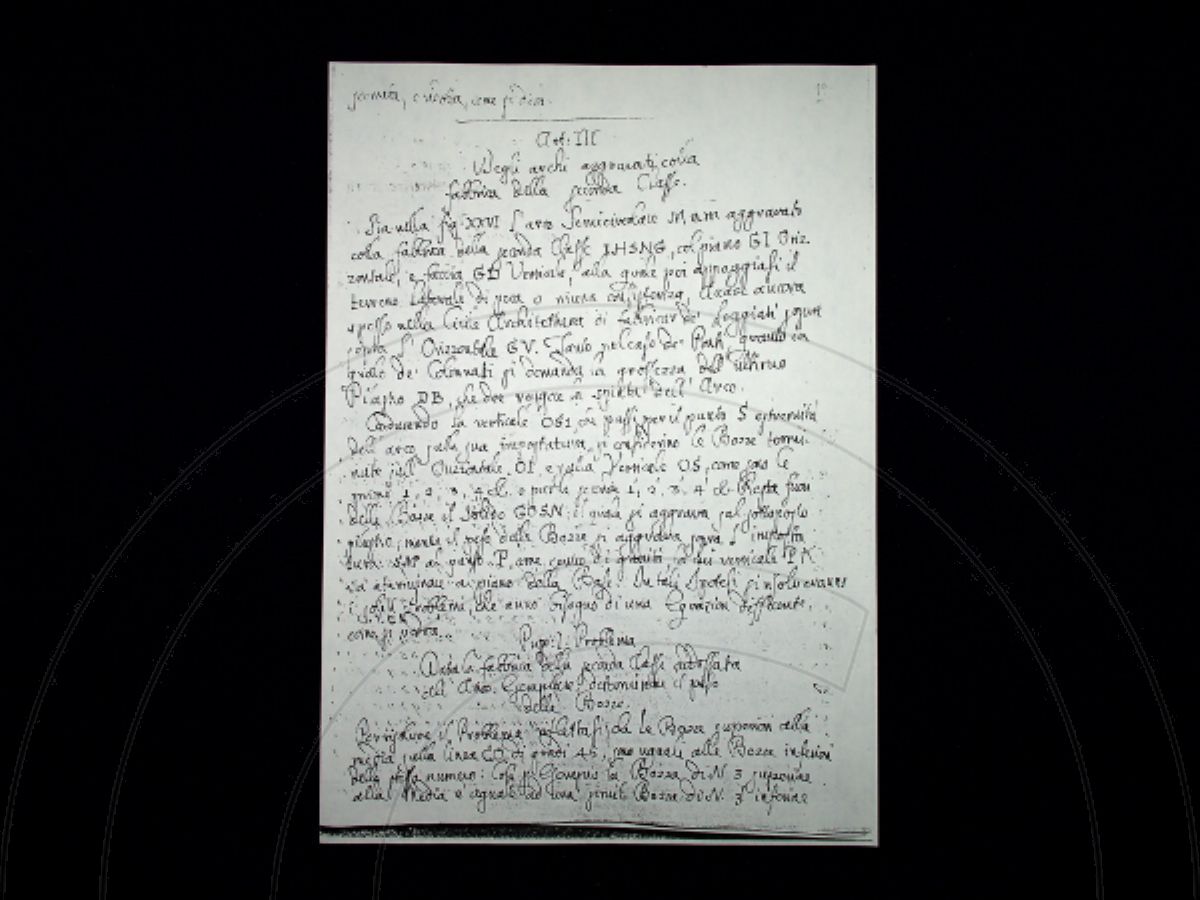 Art: III
Degli archi aggravati colla
fabbrica della seconda Classe.
Sia nella fig. XXVI l'arco Semicircolare M, am aggravato
colla fabbrica della seconda Classe IHSNG, col piano GI Oriz-
zontale, e faccia GD Verticale, alla quale poi appoggiasi il
terreno laterale di poca o niuna consistenza,
spesso nella Civile Architettura di fabbricar de' Loggiati
sopra l' Orizzontale GV. de' Ponti, quanto in
quello de' Colonnati si domanda la grossezza dell'
Piastro DB, che dee reggere la spinta dell' Arco.
Conducendo la verticale OS1 che passi per il punto S estremità
dell' arco sulla sua impostatura, si considerino le Bozze termi-
nate sull' Orizzontale OI e sulla Verticale OS, come sono le
prime 1, 2, 3, 4 &c. e per le seconde 1', 2', 3', 4' &c. Resta fuori
delle Bozze il Solido GOSN, il quale si aggrava sul sottoposto
piastro, mentre il peso delle Bozze si aggrava sopra l' imposta-
tura al punto P, come centro di gravità, la cui verticale PK
va a terminare al piano della Base. In tale Ipotesi si risolveranno
i Problemi, che anno bisogno di una Equazion differente,
come si vedrà.
Prop: I. Problema
Data la fabbrica della seconda Classe addossata
all' Arco Semicircolare, determinare il peso
delle Bozze.
Per risolvere il Problema riflettasi che le Bozze superiori alla
media sulla linea CO di gradi 45, sono uguali alle Bozze inferiori
dello stesso numero: Così per Esempio la Bozza di N. 3 superiore
alla Media è eguale ad una simile Bozza di N. 3 inferiore